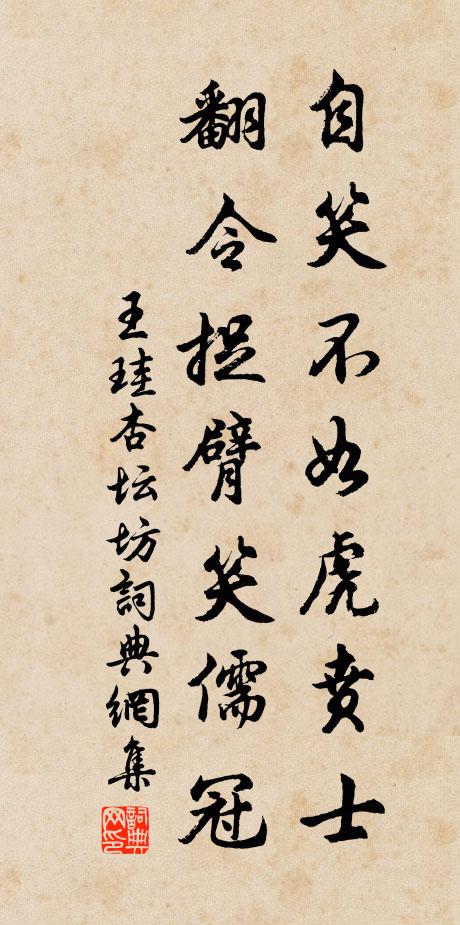 自笑不如虎賁士
翻令捉臂笑儒冠
王珪杏坛坊詞典網集
詞典网印